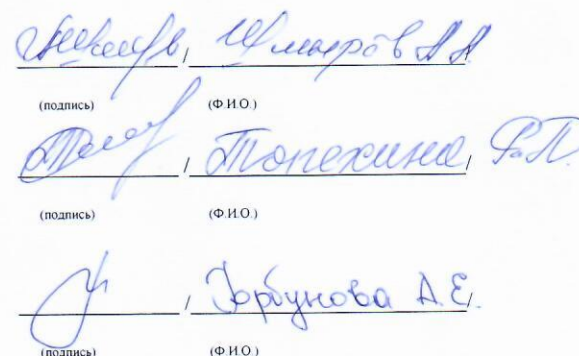 / Шмыров А А
(подпись) (Ф.И.О.)
/ Топехина Р.П. /
(подпись) (Ф.И.О.)
/ Горбунова А.Е. /
(подпись) (Ф.И.О.)